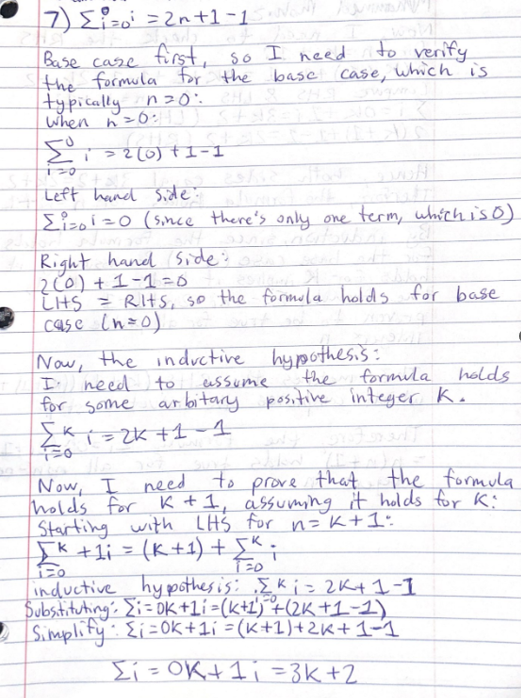 7) Σi=0^n i = 2n+1-1
Base case first, so I need to verify
the formula for the base case, which is
typically n=0:
when n=0:
Σ_{i=0}^{0} i = 2(0)+1-1
Left hand side:
Σi=0^0 i=0 (since there's only one term, which is 0)
Right hand side:
2(0)+1-1=0
LHS = RHS, so the formula holds for base
case (n=0)
Now, the inductive hypothesis:
I need to assume the formula holds
for some arbitary positive integer K.
Σ_{i=0}^{K} i = 2K+1-1
Now, I need to prove that the formula
holds for K+1, assuming it holds for K:
Starting with LHS for n=K+1:
Σ_{i=0}^{K} +1i = (K+1) + Σ_{i=0}^{K} i
inductive hypothesis: Σ_{i=0}^{K} i = 2K+1-1
Substituting: Σi=0K+1i=(K+1)+(2K+1-1)
Simplify: Σi=0K+1i=(K+1)+2K+1-1
Σi=0K+1i=3K+2